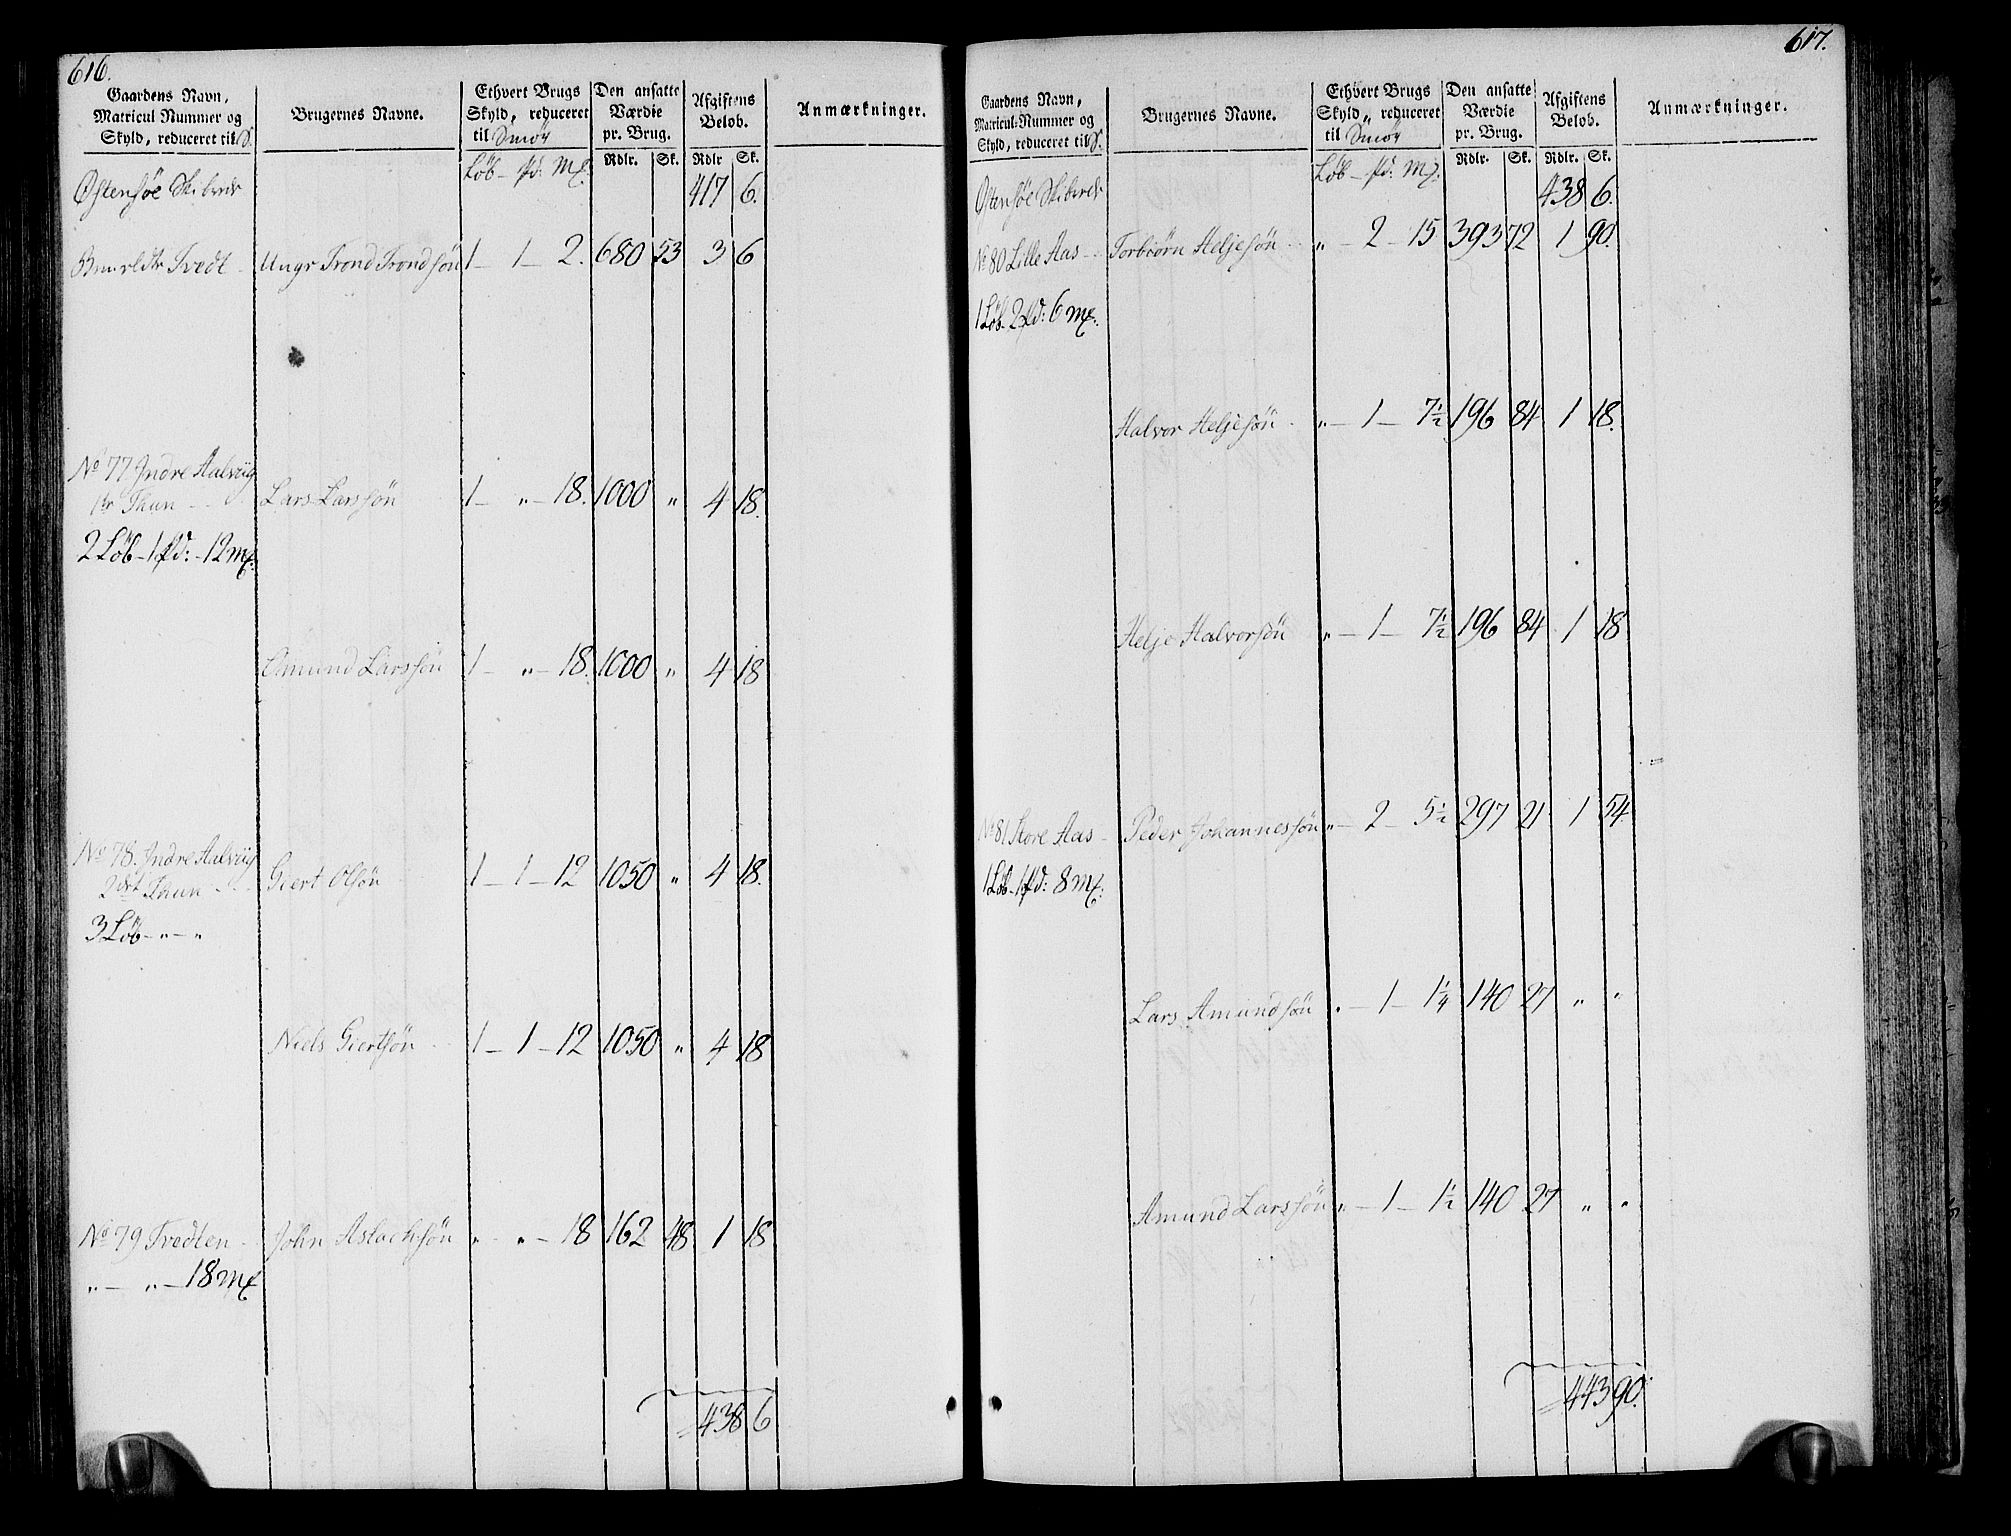 616.
Gaardens Navn, Matricul Nummer og Skyld, reduceret til S.
Brugernes Navne.
Ethvert Brugs Skyld, reduceret til Smör
Den ansatte Værdie pr. Brug.
Afgiftens Beløb.
Anmærkninger.
Löb - pd: mk: Rdlr. Sk. Rdlr Sk.
Östensöe Skibrede 417 6.
Tvedt - Ungr Trond Trondsön 1 - 1 - 2. 680 53 3 6
No 77 Indre Aalviig
1te Thun - - Lars Larssön 1 - " - 18. 1000 " 4 18.
2 Löb - 1 pd: - 12 mk:
Amund Larssön 1 - " - 18. 1000 " 4 18
No 78. Indre Aalviig
2det Thun - - Giert Olsön 1 - 1 - 12 1050 " 4 18.
3 Löb - " - "
Niels Giertsön - 1 - 1 - 12 1050 " 4 18
No 79 Tvedten - John Aslachsön " - " - 18 162 48 1 18
" - " - 18 mk
438 6
617.
Gaardens Navn, Matricul-Nummer og Skyld, reduceret til S.
Brugernes Navne.
Ethvert Brugs Skyld, reduceret til Smör
Den ansatte Værdie pr. Brug.
Afgiftens Beløb.
Anmærkninger.
Löb - pd: mk: Rdlr. Sk. Rdlr. Sk.
Östensöe Skibrede 438 6.
No 80 Lille Aas - - Torbiörn Heljesön - " - 2 - 15 393 72 1 90.
1 Löb 2 pd: 6 mk:
Halvor Heljesön - " - 1 - 7½ 196 84 1 18.
Helje Halvorsön " - 1 - 7½ 196 84 1 18
No 81 Store Aas - Peder Johannessön " - 2 - 5½ 297 21 1 54
1 Löb - 1 pd: 8 mk:
Lars Amundsön " - 1 - 1¼ 140 27 " "
Amund Larssön " - 1 - 1½ 140 27 " "
443 90.